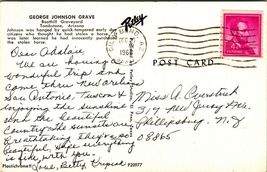 GEORGE JOHNSON GRAVE
Boothill Graveyard
Tombstone, Arizona
Johnson was hanged by quick-tempered early day
citizens who thought he had stolen a horse. It
was later learned he had innocently purchased
the stolen horse.
Petley
POST CARD
Dear Adelaide,
We are having a
wonderful trip and
came thru New Orleans
San Antonio, Tucson &
enjoying the sunshine
and the beautiful
country. The sunsets are
Breathtaking they're so
Beautiful. Hope everything
is fine with you.
Love, Betty
Miss A Overstreet
319 New Jersey Ave.
Phillipsburg, N.J.
08865
Plastichrome
P20977